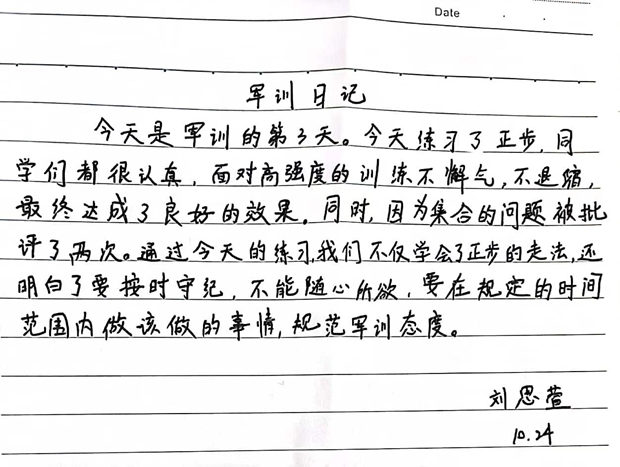 Date
军训日记
今天是军训的第3天。今天练习了正步,同
学们都很认真,面对高强度的训练不懈气,不退缩,
最终达成了良好的效果。同时,因为集合的问题被批
评了两次。通过今天的练习我们不仅学会了正步的走法,还
明白了要按时守纪,不能随心所欲,要在规定的时间
范围内做该做的事情,规范军训态度。
刘思萱
10.24